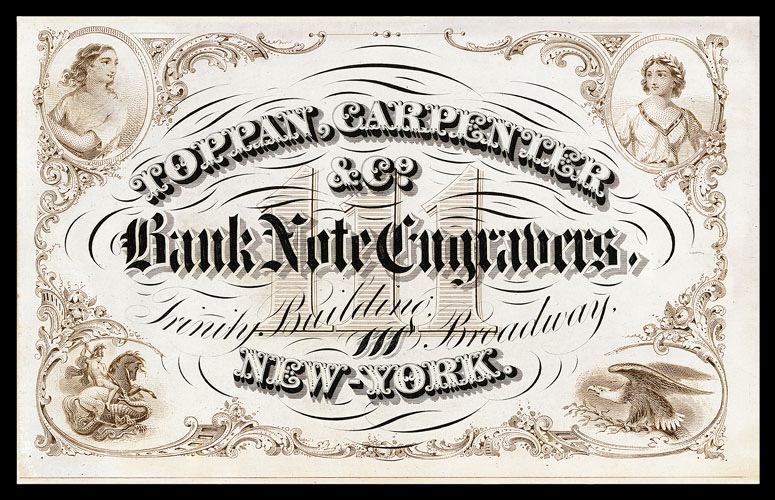 TOPPAN, CARPENTER
& Co.
Bank Note Engravers.,
Trinity Building, 111 Broadway.
NEW-YORK.
111